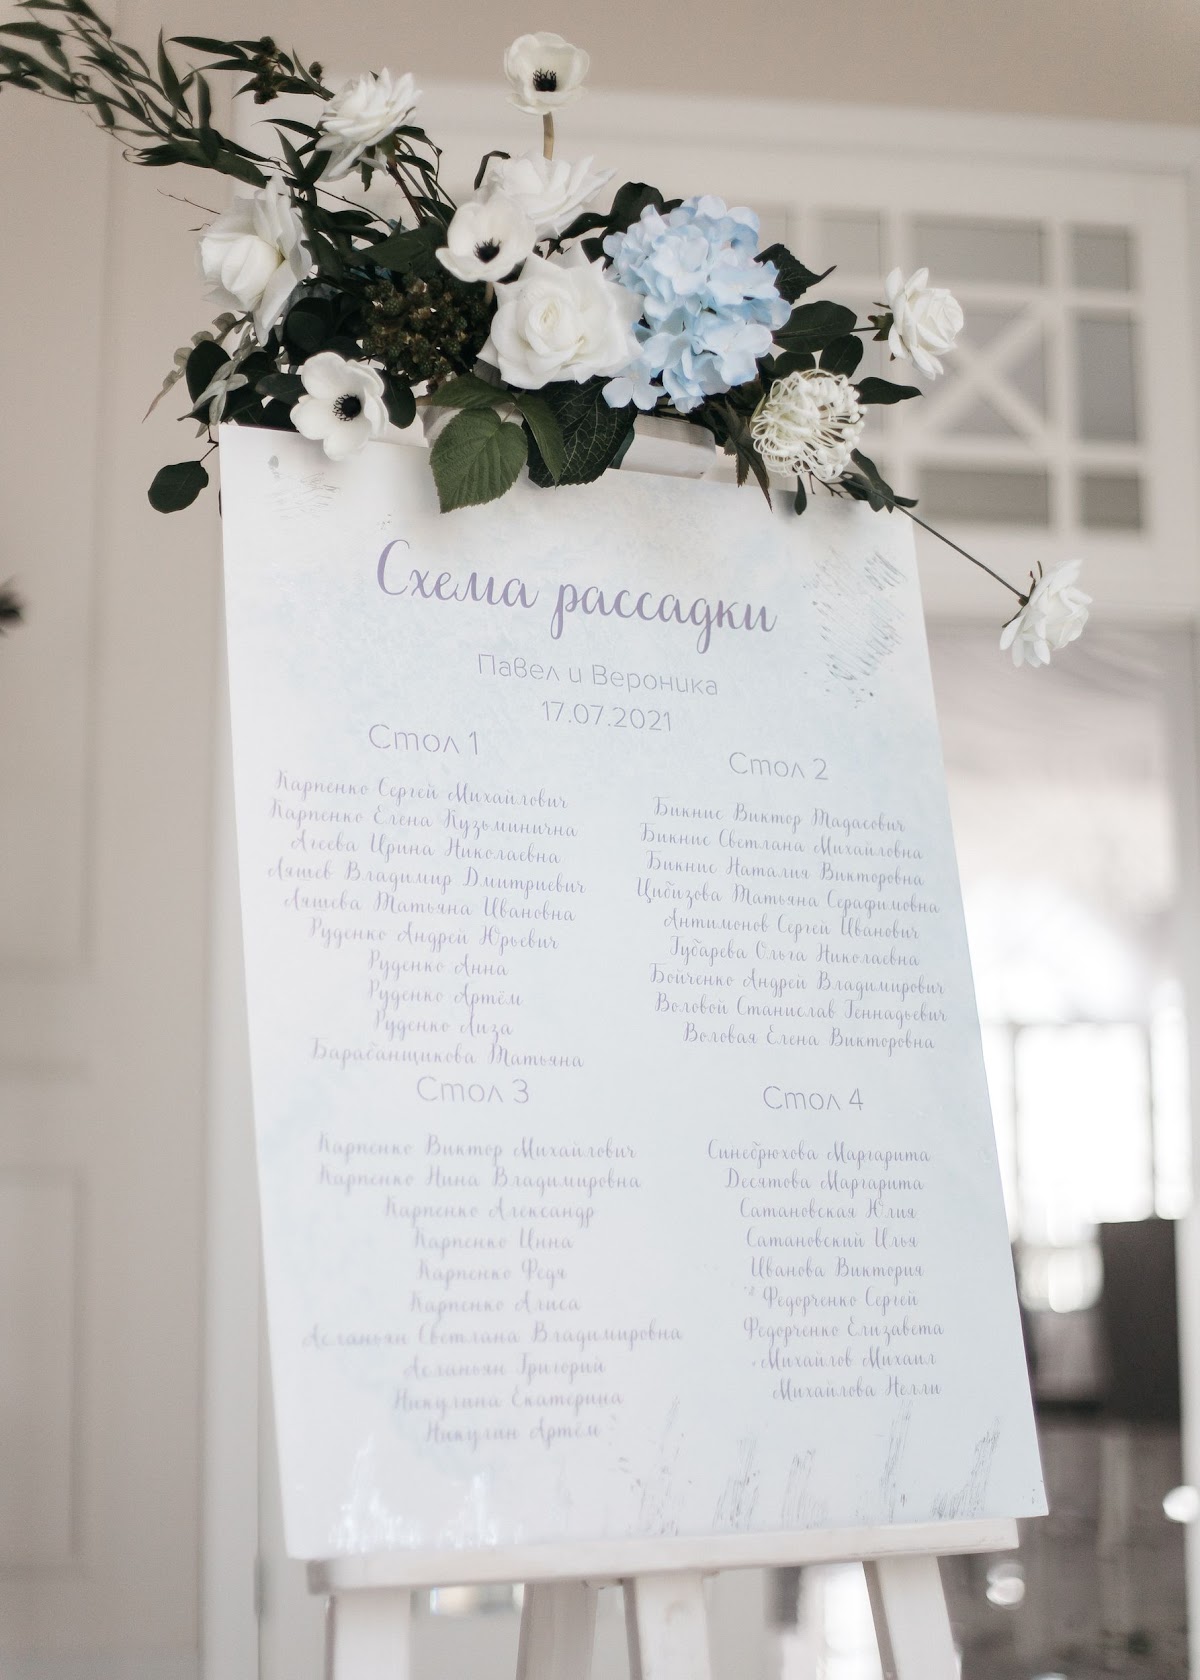 Схема рассадки
Павел и Вероника
17.07.2021
Стол 1
Карпенко Сергей Михайлович
Карпенко Елена Кузьминична
Агеева Ирина Николаевна
Ляшев Владимир Дмитриевич
Ляшева Татьяна Ивановна
Руденко Андрей Юрьевич
Руденко Анна
Руденко Артём
Руденко Лиза
Барабанщикова Татьяна
Стол 2
Бикнис Виктор Тадасович
Бикнис Светлана Михайловна
Бикнис Наталия Викторовна
Цибизова Татьяна Серафимовна
Антимонов Сергей Иванович
Губарева Ольга Николаевна
Бойченко Андрей Владимирович
Воловой Станислав Геннадьевич
Воловая Елена Викторовна
Стол 3
Карпенко Виктор Михайлович
Карпенко Нина Владимировна
Карпенко Александр
Карпенко Инна
Карпенко Федя
Карпенко Алиса
Асланьян Светлана Владимировна
Асланьян Григорий
Никулина Екатерина
Никулин Артём
Стол 4
Синебрюхова Маргарита
Десятова Маргарита
Сатановская Юлия
Сатановский Илья
Иванова Виктория
Федорченко Сергей
Федорченко Елизавета
Михайлов Михаил
Михайлова Нелли